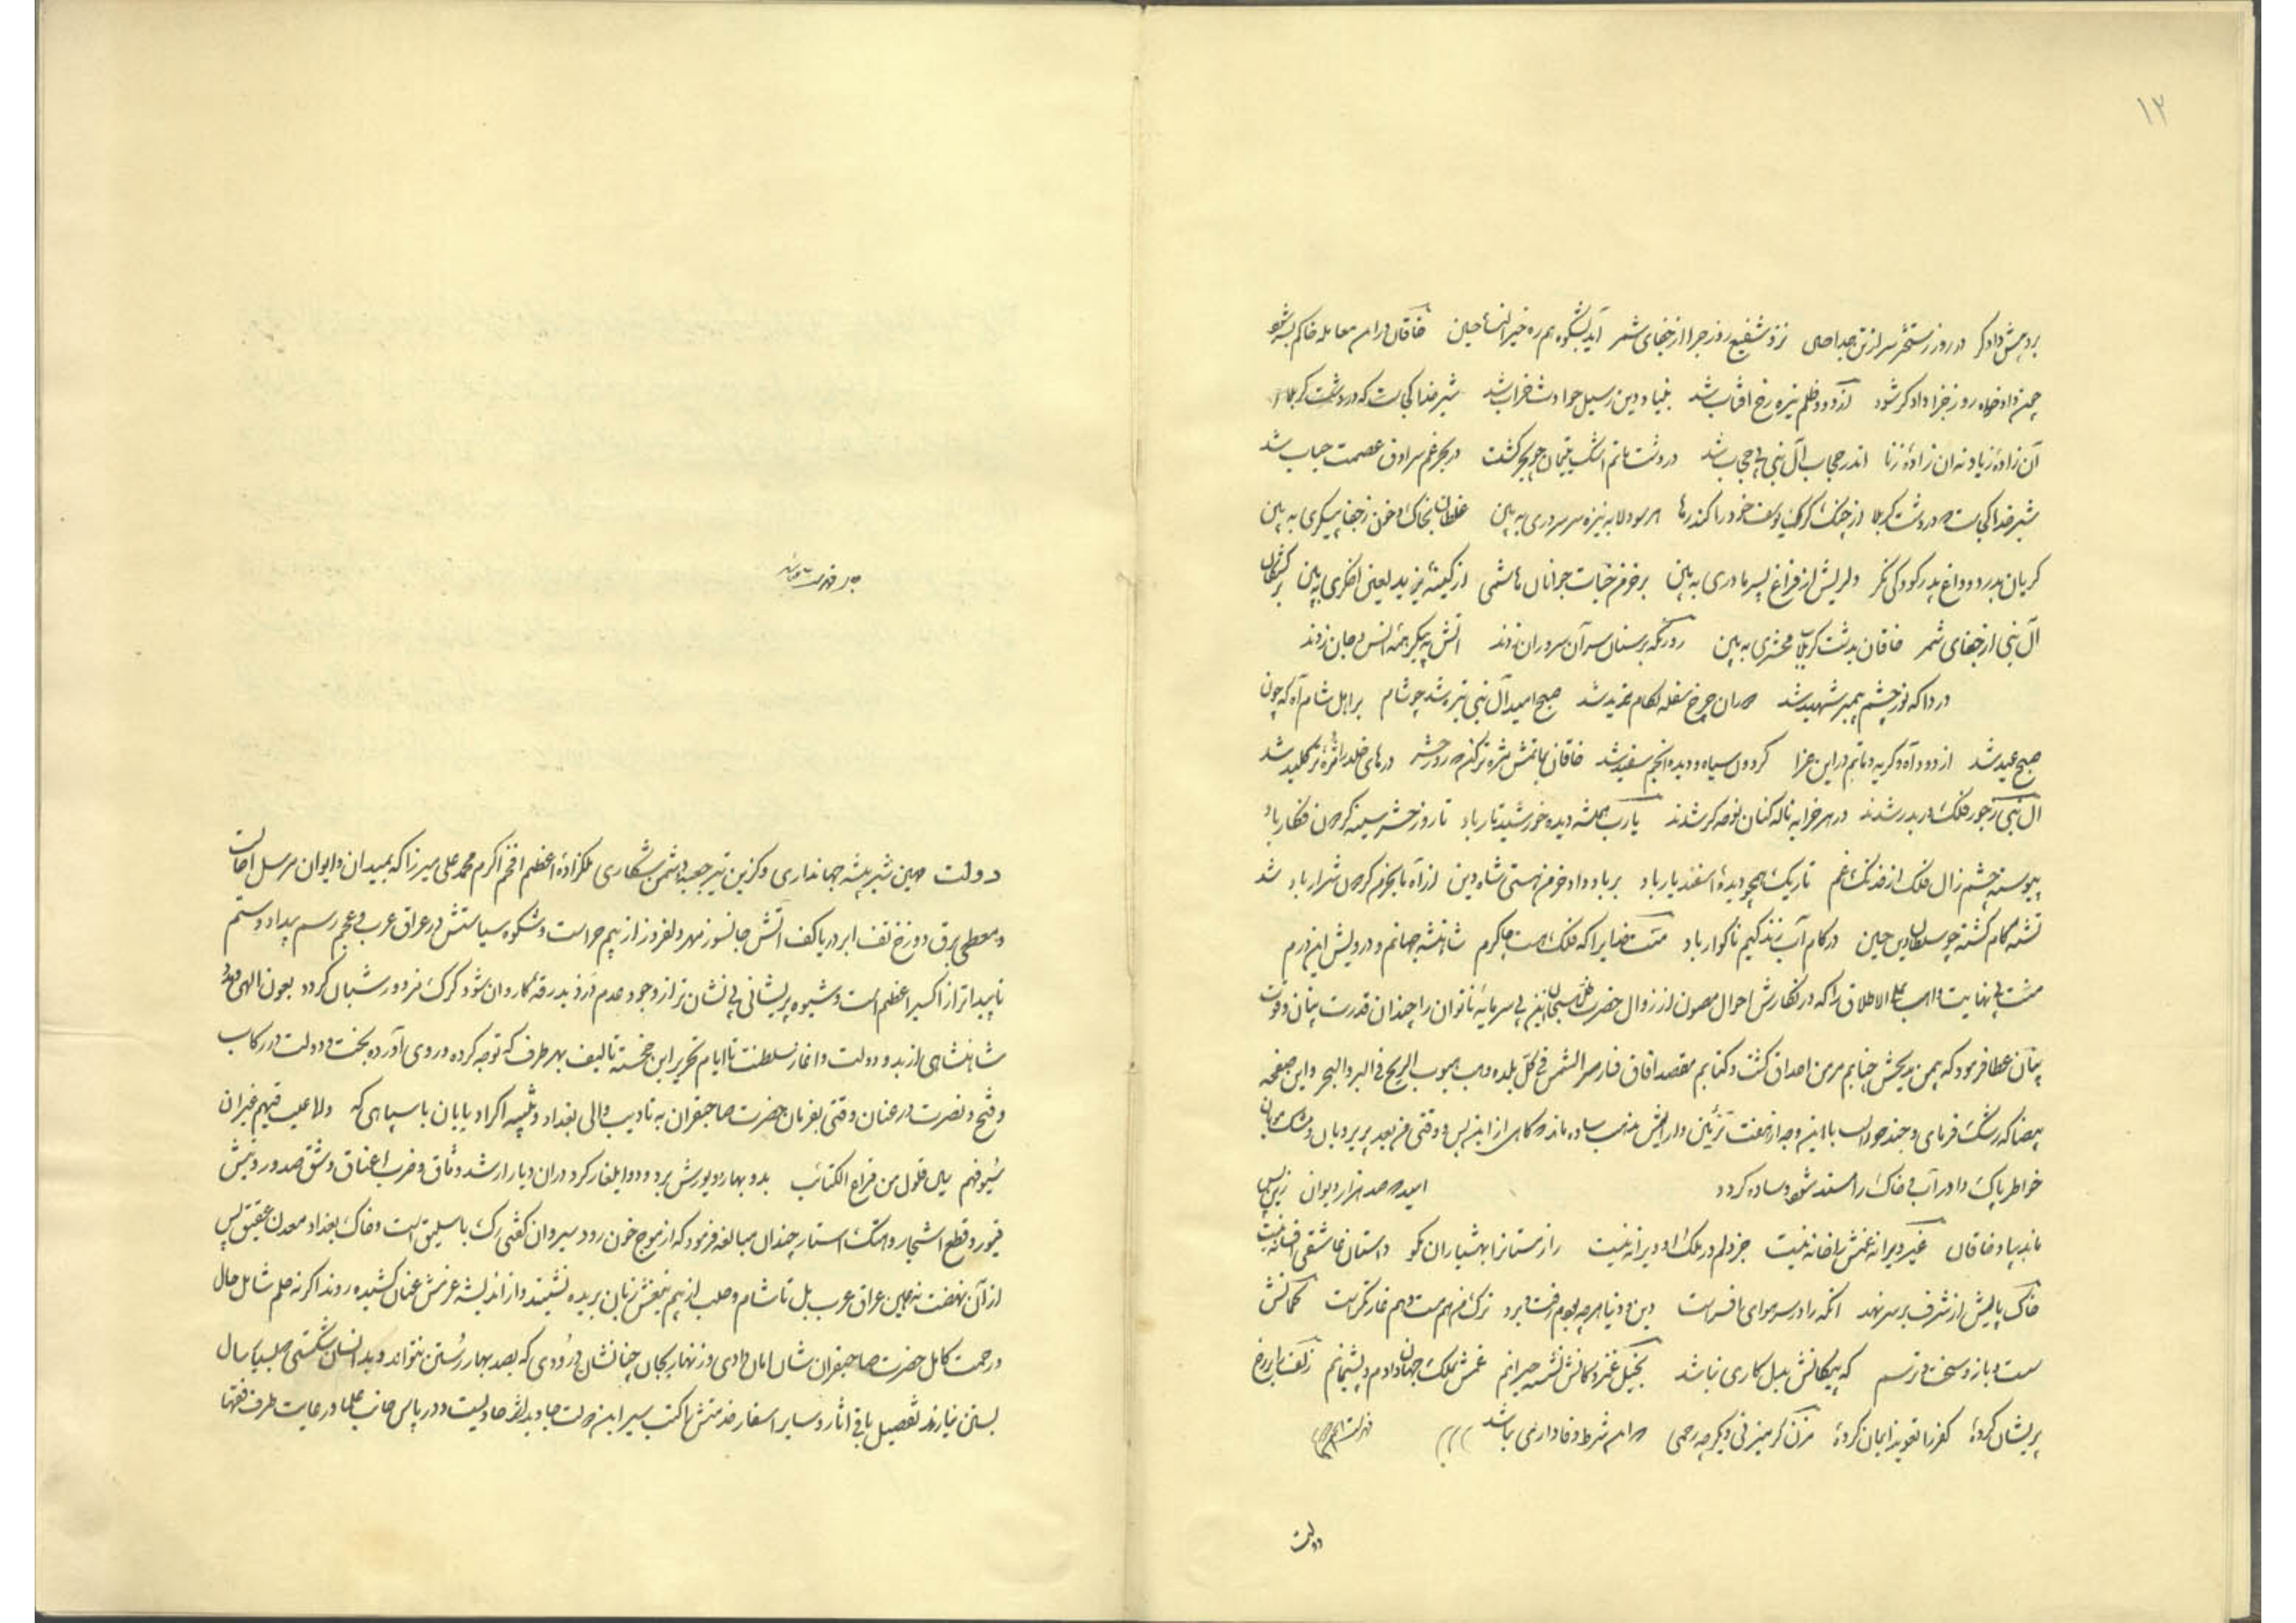 ۱۲
بر درپیش دادگر در روز رستخیز سر از تن جدا حسین نزد شفیع روز جزا از جفای شمر آید بشکوه همره خیر النسا حسین خاقان در این معامله خاکم بسر شود
چون دادخواه روز جزا دادگر شود از دود ظلم تیره رخ آفتاب شد بنیاد دین ز سیل حوادث خراب شد شیر خدا کجاست که در دشت کربلا از
آن زاده زیاد نه آن زاده زنا اندر حجاب آل نبی بی حجاب شد در دشت ماتم اشک یتیمان چو بحر گشت در بحر غم سرادق عصمت حباب شد
شیر خدا کجاست در دشت کربلا از چنگ گرگ یوسف خود را کند رها هر سو دلا به نیزه سر سروری به بین غلطان بخاک و خون ز جفا پیکری به بین
گریان بدرد و داغ پدر کودکی نگر دلریش از فراغ پسر مادری به بین بر خرمن حیات جوانان هاشمی از کینه یزید لعین اخگری به بین بر کشتگان
آل نبی از جفای شمر خاقان بدشت کربلا محشری به بین روزیکه بر سنان سر آن سروران زدند آتش به پیکر همه انس و جان زدند
دردا که نور چشم پیمبر شهید شد دوران چرخ سفله بکام یزید شد صبح امید آل نبی تیره شد چو شام بر اهل شام آه که چون
صبح عید شد از دود آه و گریه و ماتم در این عزا گردون سیاه و دیده انجم سفید شد خاقان بماتمش مژه تر کن که روز حشر درهای خلد را مژه تر کلید شد
آل نبی ز جور فلک دربدر شدند در هر خرابه ناله کنان نوحه گر شدند یارب همیشه دیده خورشید تار باد تا روز حشر سینه گردون فکار باد
پیوسته چشم زال فلک از خدنگ غم تاریک همچو دیده اسفندیار باد بر باد داد خرمن هستی شاه دین از آه ما بخرمن گردون شرار باد شد
تشنه کام کشته چو سلطان دین حسین در کام آب زندگیم ناگوار باد منت خدایرا که فلک هست چاکرم شاهنشه جهانم و درویش این درم
منت بی نهایت واهب علی الاطلاق را که در نگارش احوال مصون از زوال حضرت ظل سبحان این بی سرمایه ناتوان را چندان قدرت بنان و قوت
بیان عطا فرمود که بمن مدیحش جنابم مرمی احداق گشت و کتابم مقصد آفاق فسار مسیر الشمس فی کل بلده وهب هبوب الریح فی البر والبحر و این صفحه
بیضا که رشک فرمای
خاطر پاک دادر آب و خاک را مسند شهود ساده گردد امید صد هزار دیوان زین پس
ماند بیاد خاقان غیر ویرانه غمش را خانه نیست جز دلم در ملک او ویرانه نیست راز مستانرا بهشیاران مگو داستان عاشقی افسانه نیست
خاک پایش از شرف بر سر نهد آنکه را در سر هوای افسر است دین و دنیا هر چه بودم رفت و برد ترک من هم مست و هم غارتگر است کمانش
سست و بازو سخت و ترسم که پیکانش بدل کاری نباشد غمش بملک جهان دادم و پشیمانم زلف را بر رخ
پریشان کرده کفر را تعویذ ایمان کرده مزن گر میزنی دیگر چه رحمی شرط وفاداری نباشد
دولت
دولت مهین شیر بیشه جهانداری و گزین تیر جعبه دشمن شکاری ملکزاده اعظم افخم اکرم محمد علی میرزا که بمیدان و ایوان مرسل آجال
و معطی برق دوزخ تف ابر دریا کف آتش جانسوز مهر دلفروز از بیم حراست و شکوه سیاستش در عراق عرب و عجم رسم بیداد و ستم
ناپیداتر از اکسیر اعظم است و شیوه پریشانی بی نشان تر از وجود عدم دزد بدرقه کاروان شود گرگ مزدور شبان گردد بعون الهی
شاهنشاهی از بدو دولت و آغاز سلطنت تا ایام تحریر این خجسته تالیف بهر طرف که توجه کرده و روی آورده بخت و دولت در رکاب
و فتح و نصرت در عنان وقتی بفرمان حضرت صاحبقران به تادیب والی بغداد و تنبیه اکراد بابان با سپاهی که ولا عیب فیهم غیر ان
سیوفهم بهن فلول من قراع الکتائب در آن دیار از شد وثاق و ضرب اعناق و شق صدور و نبش
قبور و قطع اشجار و هتک استار چندان مبالغه فرمود که از موج خون رود سیروان گفتی رگ باسلیق است و خاک بغداد معدن عقیق پس
از آن نهضت نه همین عراق عرب بل تا شام و حلب از بیم تیغش زبان بریده نشینند و از اندیشه عزمش عنان کشیده روند اگر نه حلم شامل حال
و رحمت کامل حضرت صاحبقران شان امان دادی و زنهار بجان چنانشان درودی که بصد بهار رستن نتواند
بستن نیارند تفصیل باقی آثار و سایر اسفار